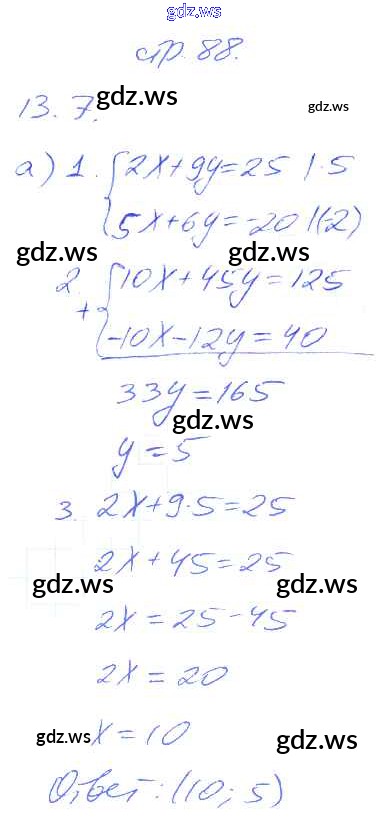 gdz.ws
стр. 88.
gdz.ws
13. 7.
gdz.ws
а) 1. {2x+9y=25 |·5
5x+6y=-20 |(-2)
gdz.ws gdz.ws
2. + {10x+45y=125
-10x-12y=40
33y=165
gdz.ws
y=5
3. 2x+9·5=25
2x+45=25
gdz.ws gdz.ws
2x=25-45
2x=20
gdz.ws x=10
gdz.ws
Ответ: (10; 5)